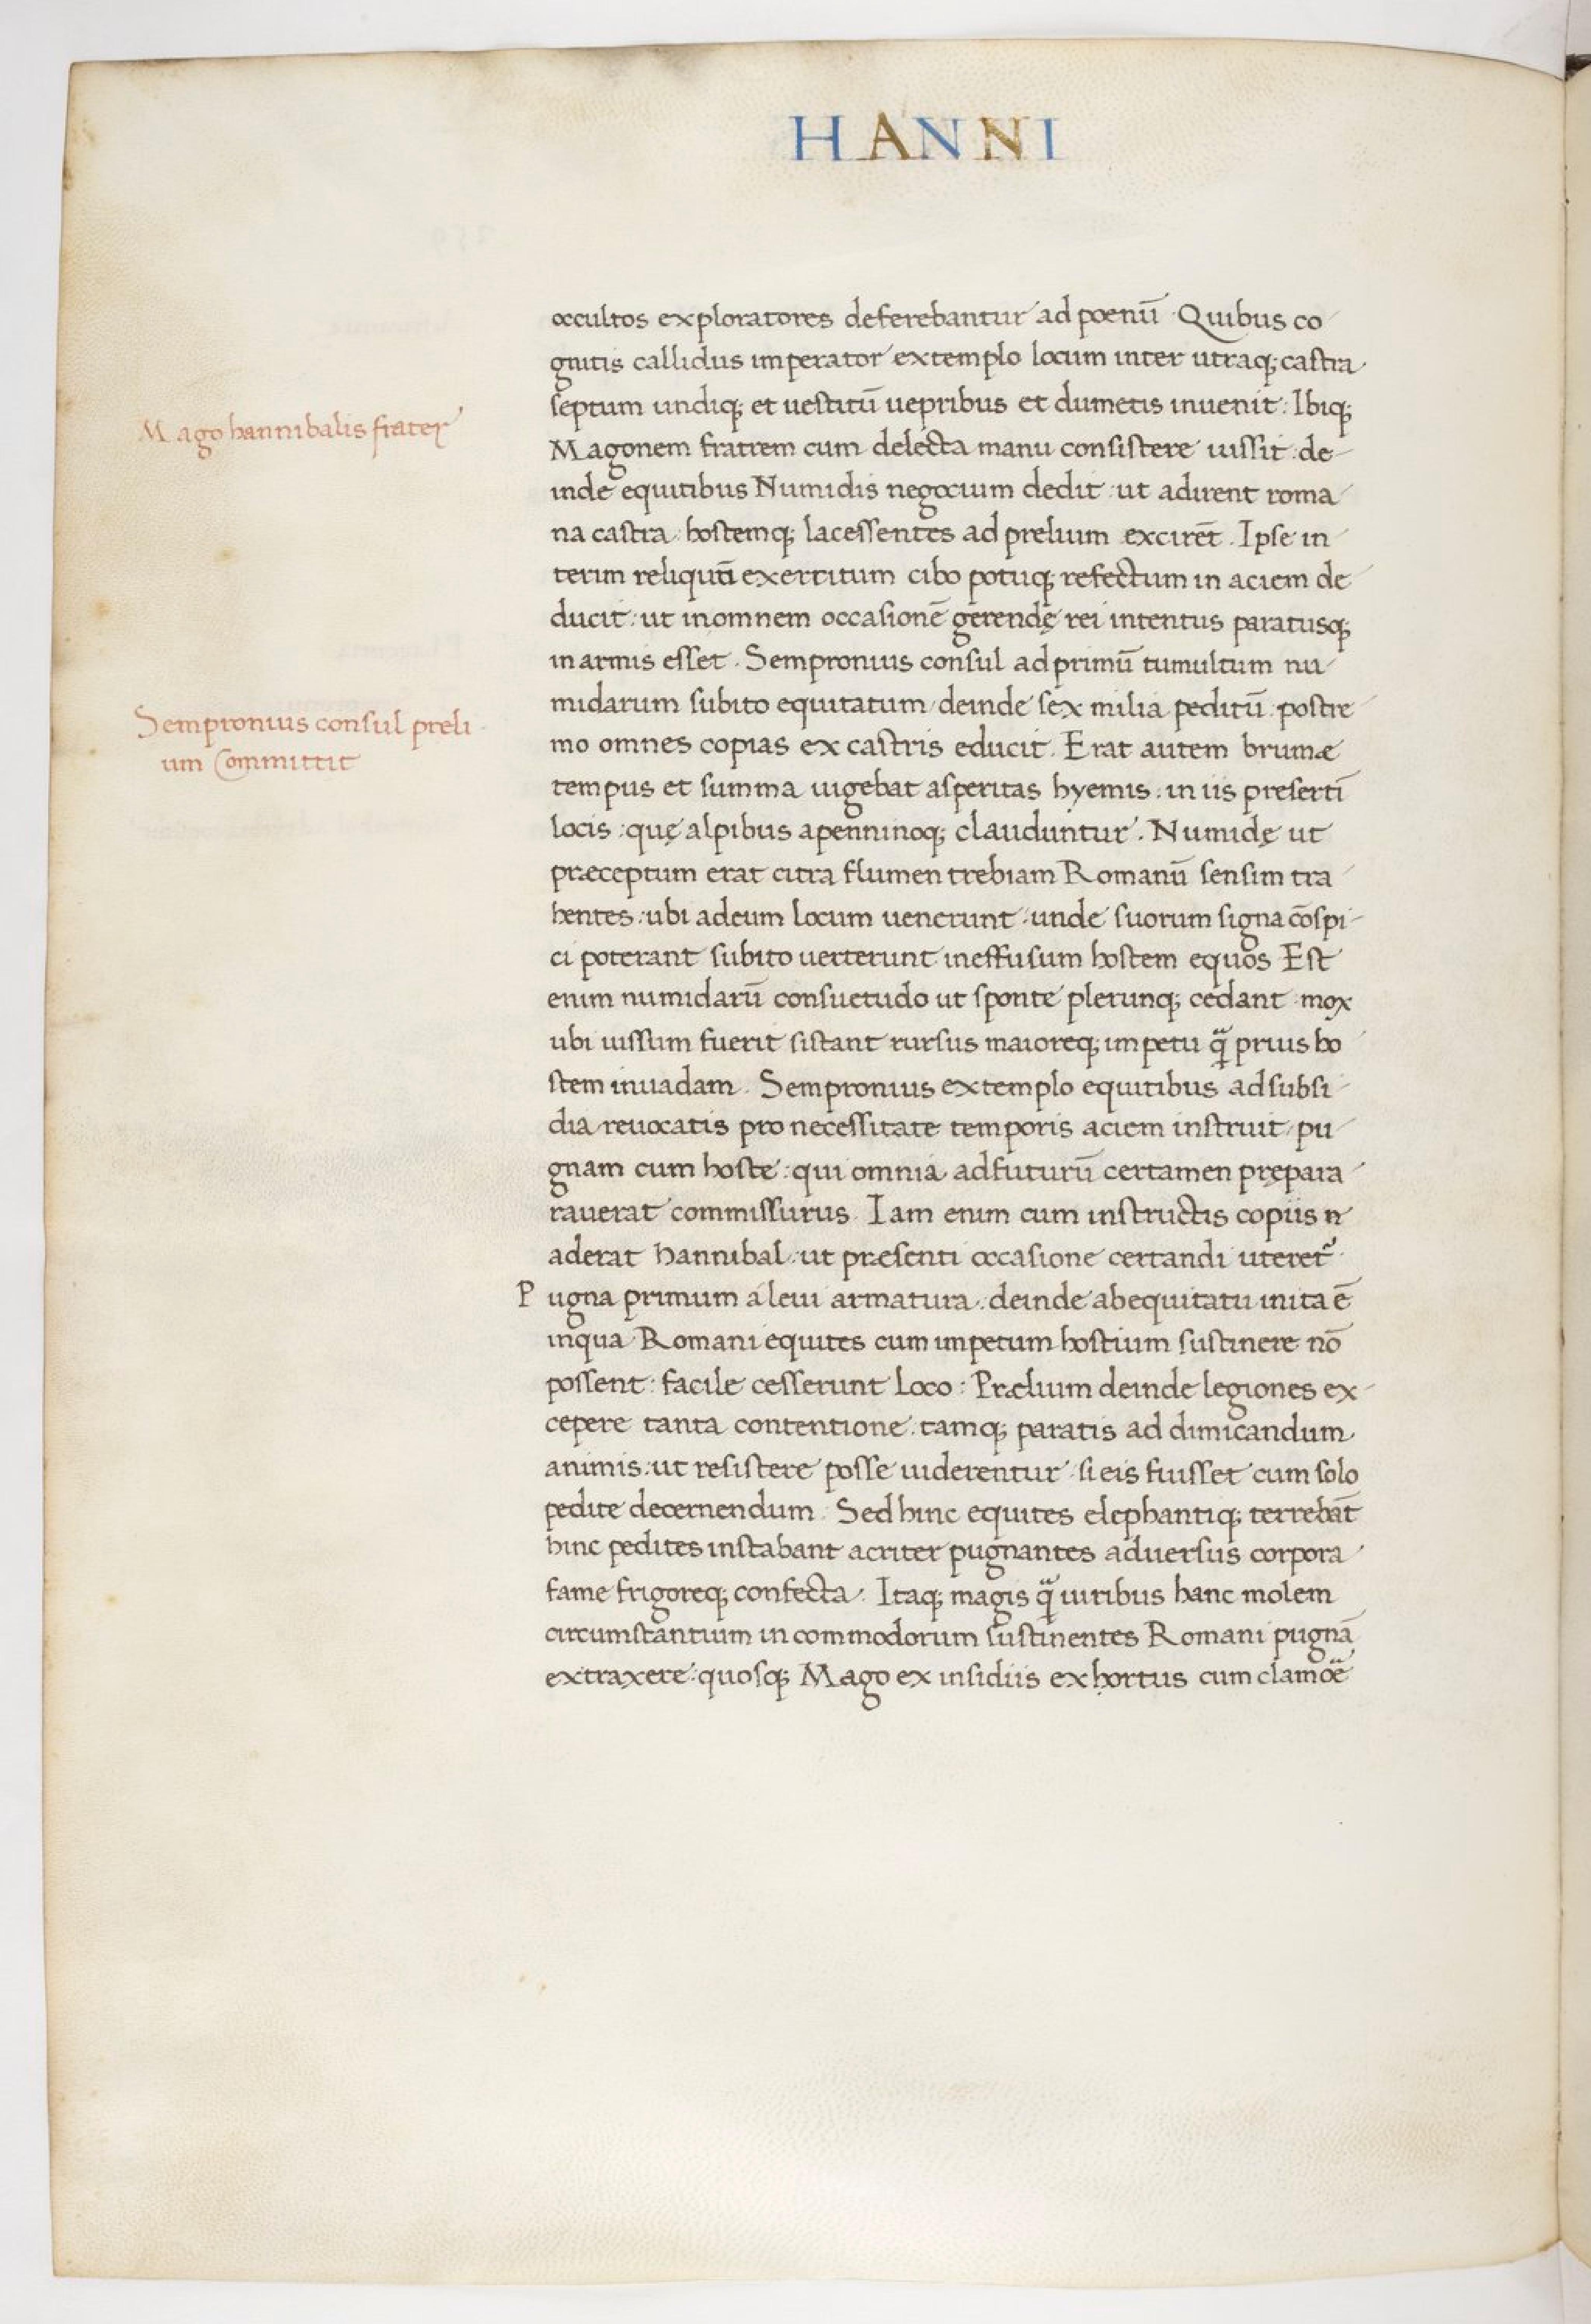 HANNI
occultos exploratores deferebantur ad poenū · Quibus co
gnitis callidus imperator extemplo locum inter utraq; castra
septum undiq; et uestitū uepribus et dumetis inuenit : Ibiq;
Mago hannibalis frater
Magonem fratrem cum delecta manu consistere iussit : de-
inde equitibus Numidis negocium dedit : ut adirent roma
na castra : hostemq; lacessentes ad prelium excirēt . Ipse in
terim reliquū exercitum cibo potuq; refectum in aciem de
ducit : ut in omnem occasionē gerendę rei intentus paratusq;
in armis esset . Sempronius consul ad primū tumultum nu
midarum subito equitatum / deinde sex milia peditū : postre
Sempronius consul preli
um Committit
mo omnes copias ex castris educit . Erat autem brumæ
tempus et summa uigebat asperitas hyemis : in iis presertī
locis : quę alpibus apenninoq; clauduntur . Numidę ut
præceptum erat citra flumen trebiam Romanū sensim tra
hentes : ubi ad eum locum uenerunt : unde suorum signa cōspi-
ci poterant subito uerterunt in effusum hostem equos Est
enim numidarū consuetudo ut sponte plerunq; cedant : mox
ubi iussum fuerit sistant rursus maioreq; impetu q̄ prius ho
stem inuadam . Sempronius extemplo equitibus ad subsi-
dia reuocatis pro necessitate temporis aciem instruit / pu
gnam cum hoste : qui omnia ad futurū certamen prępara
rauerat commissurus . Iam enim cum instructis copiis
aderat hannibal : ut præsenti occasione certandi uteret᷑ .
Pugna primum á leui armatura : deinde ab equitatu inita ē
in qua Romani equites cum impetum hostium sustinere nō
possent : facile cesserunt loco : Prælium deinde legiones ex-
cepere tanta contentione : tamq; paratis ad dimicandum
animis : ut resistere posse uiderentur : si eis fuisset cum solo
pedite decernendum . Sed hinc equites elephantiq; terrebāt
hinc pedites instabant acriter pugnantes aduersus corpora
fame frigoreq; confecta . Itaq; magis q̄ uiribus hanc molem
circumstantium incommodorum sustinentes Romani pugnā
extraxere : quosq; Mago ex insidiis exhortus cum clamoē